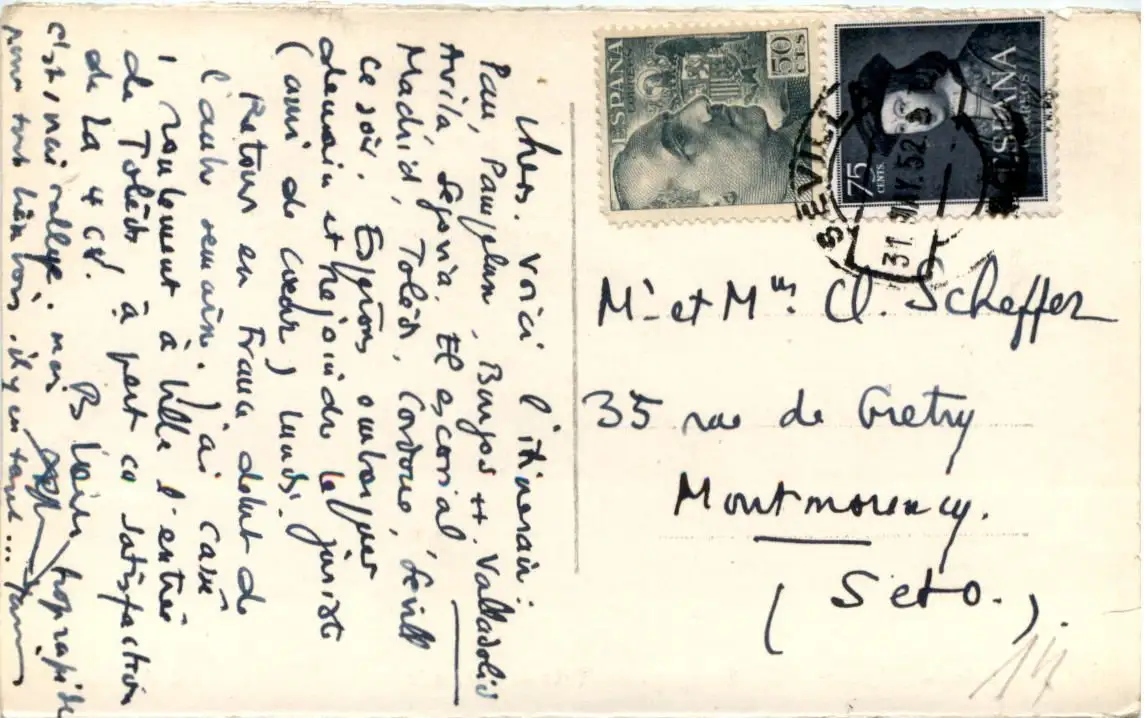 Chers. Voici l'itinéraire.
Pau, Pampelune, Burgos ++, Valladolid
Avila, Segovia. El escorial,
Madrid, Tolède, Cordoue, Sévill
ce soir. Espérons embarquer
demain et rejoindre le juriste
(ami de cœur) lundi.
Retour en France début de
l'autre semaine. J'ai cassé
1 roulement à bille à l'entrée
de Tolède à part ca satisfaction
de la 4 CV. Bs loin trop rapide
c'est 1 vrai rallye. moi
nous tout bien vous. il y en
ESPAÑA
CORREOS
50 CTS
75 CENTS
CORREOS
ESPAÑA
F.N.M.T.
SEVILLA
31 MAY. 52
Mr et Mme Cl. Scheffer
35 rue de Gretry
Montmorency.
(Seto.).
14